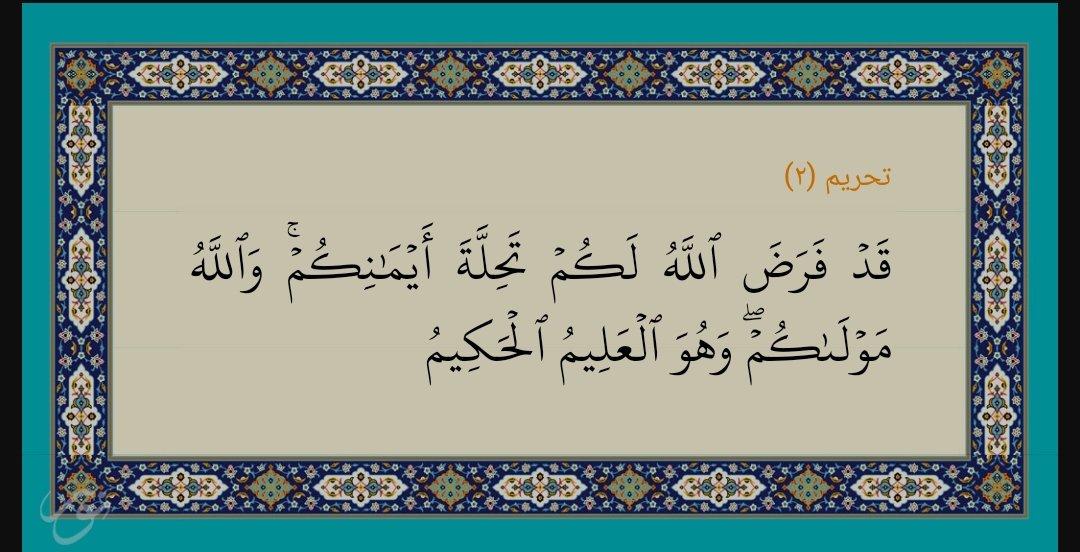 تحریم (۲)
قَدۡ فَرَضَ ٱللَّهُ لَكُمۡ تَحِلَّةَ أَيۡمَٰنِكُمۡۚ وَٱللَّهُ
مَوۡلَىٰكُمۡۖ وَهُوَ ٱلۡعَلِيمُ ٱلۡحَكِيمُ